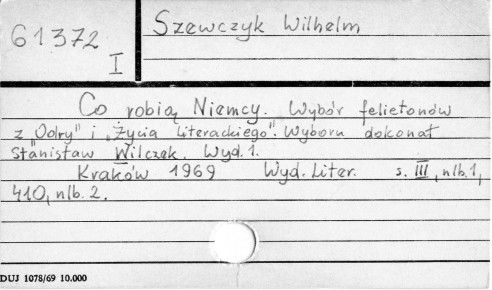 61372
I
Szewczyk Wilhelm
Co robią Niemcy. Wybór felietonów
z "Odry" i "Życia Literackiego". Wyboru dokonał
Stanisław Wilczek. Wyd. 1.
Kraków 1969 Wyd. Liter. s. III, nlb. 1,
410, nlb. 2.
DUJ 1078/69 10.000